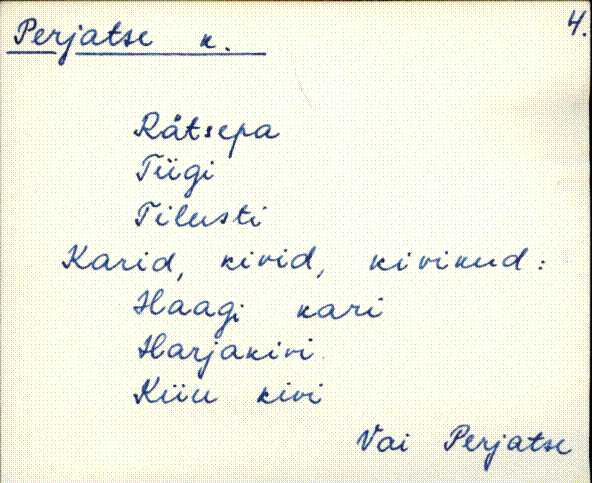 Perjatse k.
4.
Rätsepa
Tiigi
Tilusti
Karid, kivid, kivikud:
Haagi kari
Harjakivi
Kiiu kivi
Vai Perjatse